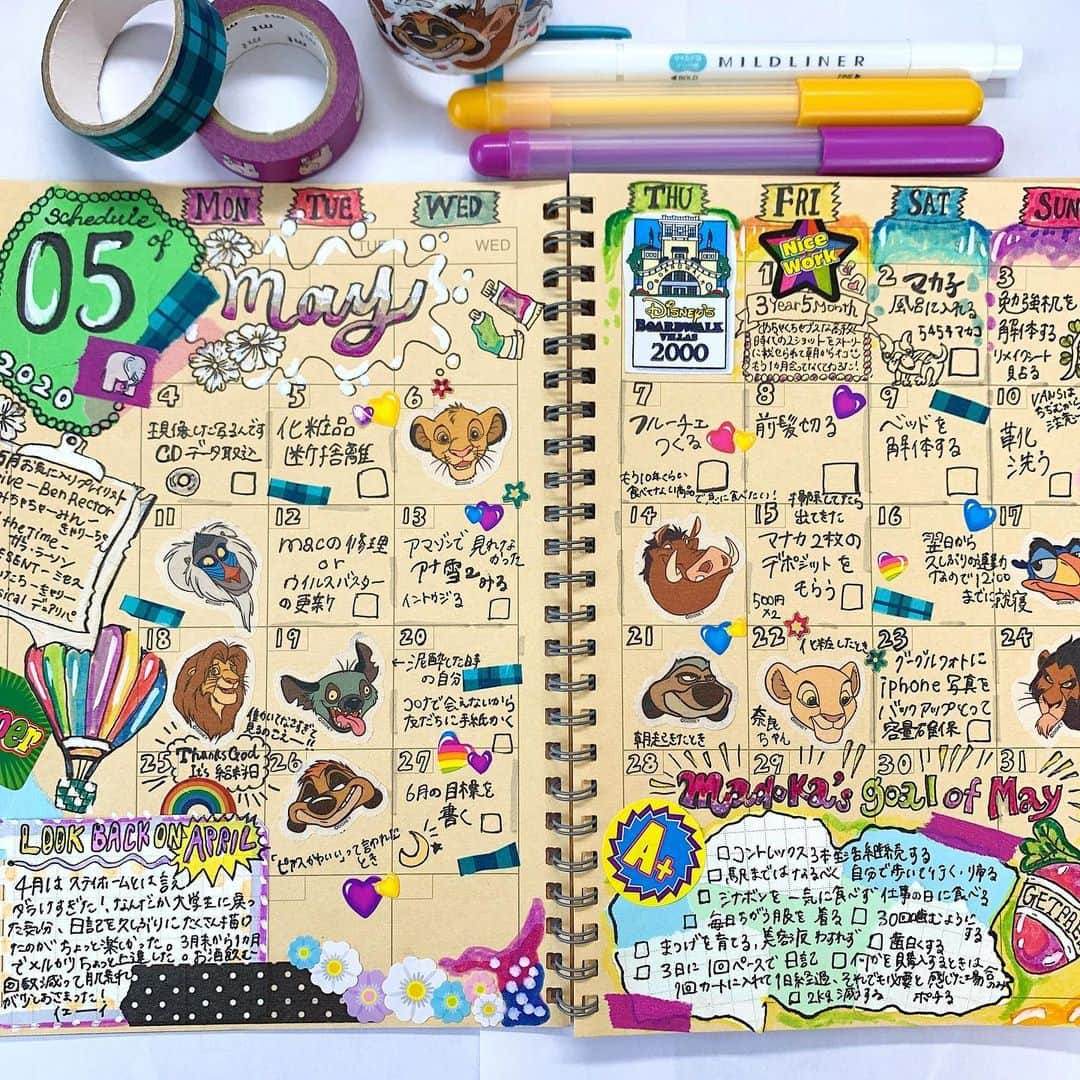 MILDLINER
BOLD
FINE
mt
schedule
of
05
2020
MON
TUE
WED
TUE
WED
THU
FRI
SAT
SUN
May
DISNEY'S
BOARDWALK
VILLAS
2000
Nice
Work
1
3 Year 5 Month
2
マカ子
風呂に入れる
5454マカコ
3
勉強机を
解体する
4
CDデータ取込
5
化粧品
断捨離
6
7
フルーチェ
つくる
もう10年くらい
食べてない商品
で急に食べたい!
8
前髪切る
9
ベッドを
解体する
10
VANSは
靴
洗う
5月お気に入りプレイリスト
Ben Rector
the Time
11
12
macの修理
or
ウイルスバスター
の更新
13
アマゾンで見れなかった
アナ雪2みる
14
15
出てきた
マナカ2枚の
デポジットを
もらう
500円
×2
16
翌日から
久しぶりの運動
なので12:00
までに就寝
17
18
19
20
←泥酔した時
の自分
コロナで会えないから
友だちに手紙かく
21
朝起きたとき
22
化粧したとき
奈良
ちゃん
23
グーグルフォトに
iphone写真を
バックアップとって
容量確保
24
25
Thanks God
It's 給料日
26
「ピアスかわいい」って言われた
とき
27
6月の目標を
書く
28
29
30
31
LOOK BACK ON APRIL
4月はステイホームとは言え
ダラけすぎた!なんだか大学生に戻っ
た気分、日記を久しぶりにたくさん描け
たのがちょっと楽しかった。3月末から1カ月
でメルカリちょっと上達した。お酒飲む
回数減って肌荒れ
がおさまった!
イェーイ
Madoka's goal of May
A+
□コントレックス3本生活継続する
□駅まではなるべく自分で歩いて行く・帰る
□シナボンを一気に食べず仕事の日に食べる
□毎日ちがう服を着る □30回噛むように
する
□まつげを育てる,美容液わすれず □歯白くする
□3日に1回ペースで日記 □何かを購入するときは
1回カートに入れて1日経過、それでも必要と感じた場合のみ
ポチる
□2kg減する